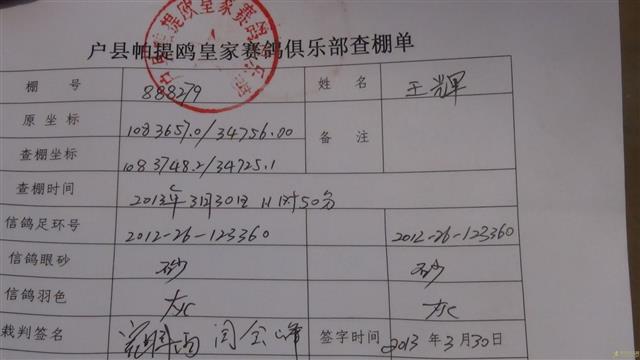 户县帕提鸥皇家赛鸽俱乐部查棚单
棚 号 888279 姓 名 王辉
原 坐 标 1083657.0/34756.00 备 注
查棚坐标 1083748.2/34725.1
查棚时间 2013年3月30日 11时50分
信鸽足环号 2012-26-123360 2012-26-123360
信鸽眼砂 砂 砂
信鸽羽色 灰 灰
裁判签名 签字时间 2013年3月30日